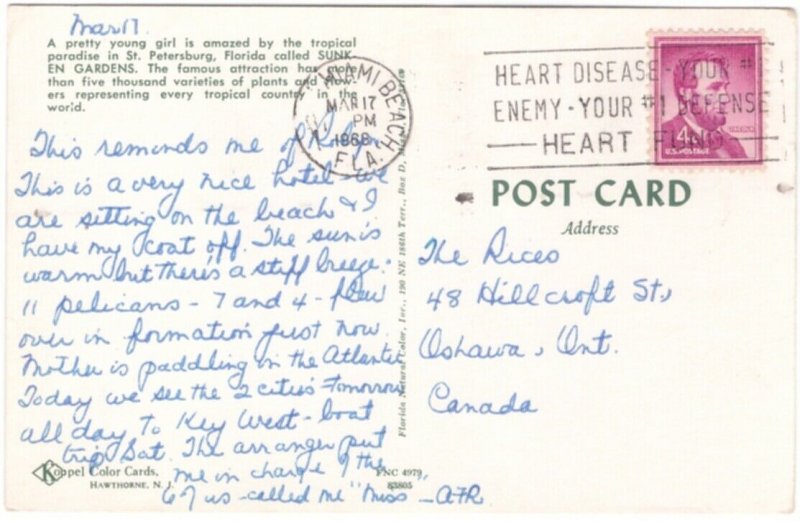 Mar 17.
A pretty young girl is amazed by the tropical
paradise in St. Petersburg, Florida called SUNK-
EN GARDENS. The famous attraction has more
than five thousand varieties of plants and flow-
ers representing every tropical country in the
world.
MIAMI BEACH,
MAR 17
PM
1968
FLA.
HEART DISEASE - YOUR #1
ENEMY - YOUR #1 DEFENSE
HEART FUND
4¢
LINCOLN
U.S. POSTAGE
This reminds me of
This is a very nice hotel - We
are sitting on the beach & I
have my coat off. The sun is
warm but there's a stiff breeze.
11 pelicans - 7 and 4 - flew
over in formation just now.
Mother is paddling in the Atlantic
Today we see the 2 cities - tomorrow
all day to Key West - boat
trip Sat. The arranger put
me in charge of the
67 us - called me "Miss" - AFR
POST CARD
Address
The Rices
48 Hillcroft St,
Oshawa, Ont.
Canada
Florida Natural Color, Inc., 190 NE 186th Terr., Box D,
Koppel Color Cards,
HAWTHORNE, N. J.
FNC 4979
83805